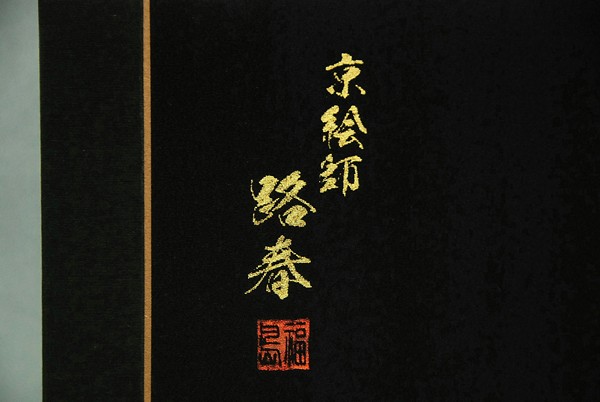 京絵師
路春
福